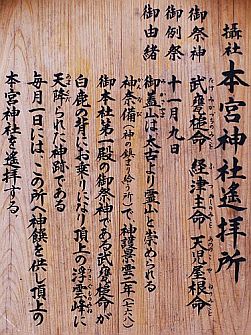 攝社 本宮神社遙拝所
御祭神 武甕槌命 経津主命 天児屋根命
御例祭 十一月九日
御由緒
御蓋山は太古より霊山と崇められる
神奈備(神の鎮まり給う所)で、神護景雲二年(七六八)
御本社第一殿の御祭神である武甕槌命が
白鹿の背にお乗りになり頂上の浮雲峰に
天降られた神跡である
毎月一日にはこの所へ神饌を供し頂上の
本宮神社を遙拝する。